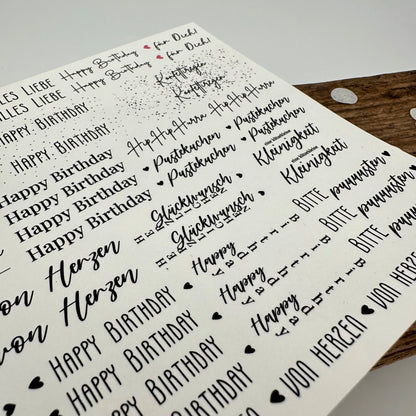 LES LIEBE Happy Birthday ♥ für Dich!
LLES LIEBE Happy Birthday ♥ für Dich!
HAPPY BIRTHDAY Konfettiregen
HAPPY BIRTHDAY Konfettiregen
Hip Hip Hurra Hip Hip Hurra
Happy Birthday ♥ Pustekuchen eine klitzekleine Kleinigkeit
Happy Birthday ♥ Pustekuchen
Happy Birthday ♥ Pustekuchen eine klitzekleine Kleinigkeit
Happy Birthday ♥ Pustekuchen
von Herzen HERZLICHEN Glückwunsch BITTE puuuusten
von Herzen HERZLICHEN Glückwunsch BITTE puuuusten
Happy BIRTHDAY Happy BIRTHDAY BITTE puuuusten
♥ HAPPY BIRTHDAY ♥ Happy BIRTHDAY Happy BIRTHDAY
♥ HAPPY BIRTHDAY ♥ VON HERZEN ♥ VON HERZEN
HAPPY BIRTHDAY ♥ VON HERZEN